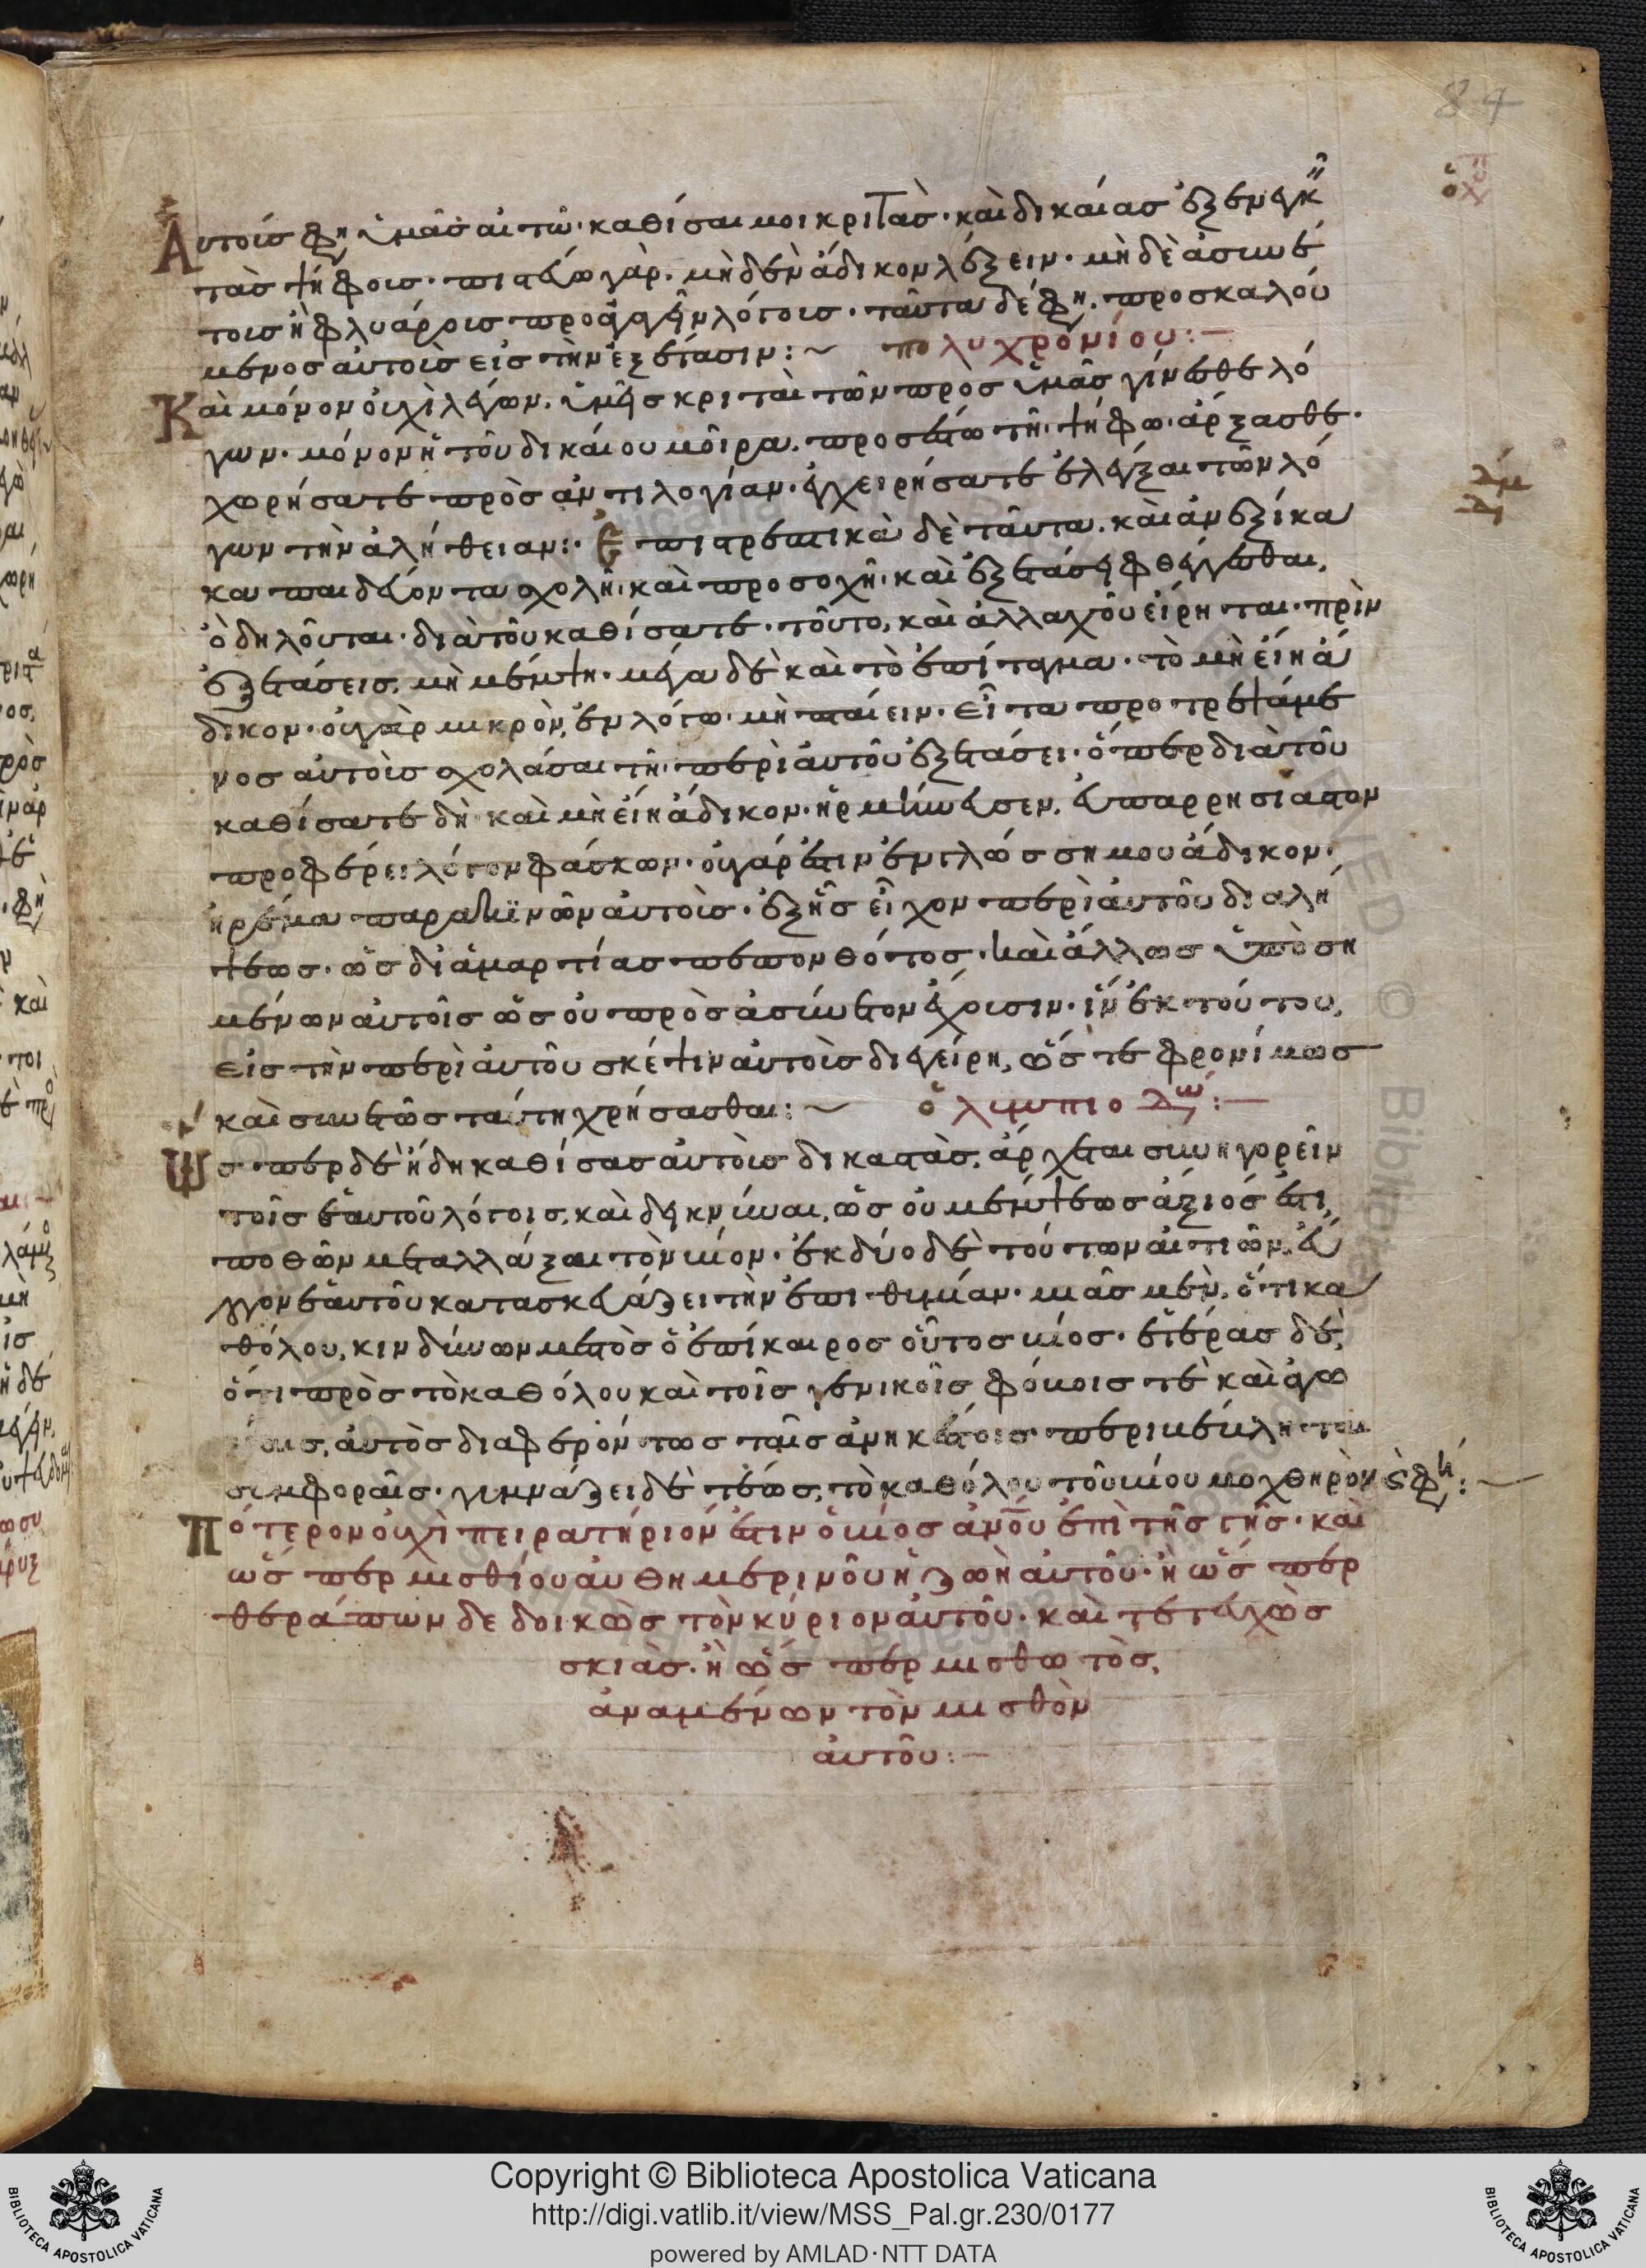 84
Αὐτοὺς φη ὑμᾶς αἰτῶ· καθίσαι μοι κριτὰς· καὶ δικαίας ἐξενεγκεῖν
τὰς ψήφους· πιστεύω γὰρ· μηδὲν ἄδικον λέξειν· μὴ δὲ ἀσυνέ
τοις ἢ φλυάροις προσχεῖν λόγοις· ταῦτα δέ φη· προσκαλού
μενος αὐτοὺς εἰς τὴν ἐξέτασιν:~ πολυχρονίου:—
Καὶ μόνον οὐχὶ λέγων· ὑμεῖς κριταὶ τῶν πρὸς ὑμᾶς γίνεσθε λό
γων· μόνον ἡ τοῦ δικαίου μοῖρα· προσέστω τῆ ψήφω· ἄρξασθε·
χωρήσατε πρὸς ἀντιλογίαν· ἐγχειρήσατε ἐλέγξαι τῶν λό
γων τὴν ἀλήθειαν:· Ἐπιστρεπτικὰ δὲ ταῦτα· καὶ ἀνεξίκα
κα παιδεύοντα σχολῆ· καὶ προσοχῆ· καὶ ἐξετάσει φθέγγεσθαι,
ὃ δηλοῦται· διὰ τοῦ καθίσατε· τοῦτο, καὶ ἀλλαχοῦ εἴρηται· πρὶν
ἐξετάσεις, μὴ μέμψη· μέγα δὲ καὶ τὸ ἐπίταγμα· τὸ μὴ εἴη ἄ
δικον· οὐ γὰρ μικρὸν, ἐν λόγω· μὴ πταίειν· εἶτα προτρεψάμε
νος αὐτοὺς σχολάσαι τῆ περὶ αὐτοῦ ἐξετάσει· ὅπερ διὰ τοῦ
καθίσατε δὴ καὶ μὴ εἴη ἄδικον· ἡρμήνευσεν, εὐπαρρησίαστον
προφέρει λόγον φάσκων· οὐ γάρ ἐστιν ἐν γλώσση μου ἄδικον·
ἠρέμα παρακινῶν αὐτοὺς· ἐξ ἧς εἶχον περὶ αὐτοῦ διαλή
ψεως· ὡς δι' ἁμαρτίας πεπονθότος· καὶ ἄλλως ὑποση
μένων αὐτοῖς ὡς οὐ πρὸς ἀσύνετον ἐρίσιν· ἵν' ἐκ τούτου,
εἰς τὴν περὶ αὐτοῦ σκέψιν αὐτοὺς διεγείρη, ὥς τε φρονίμως
καὶ συνετῶς ταύτη χρήσασθαι:~ ὀλυμπιοδώ:—
Ὥσπερ δὲ ἤδη καθίσας αὐτοὺς δικαστὰς, ἄρχεται συνηγορεῖν
τοῖς ἑαυτοῦ λόγοις, καὶ δεικνύναι, ὡς οὐ μέμψεως ἄξιός ἐστι,
ποθῶν μεταλλάξαι τὸν βίον· ἐκ δύο δὲ τούτων αἰτιῶν, εὔ
λογον ἑαυτοῦ κατασκευάζει τὴν ἐπιθυμίαν· μιᾶς μὲν, ὅτι κα
θόλου, κινδύνων μεστὸς ὁ ἐπίκαιρος οὗτος βίος· ἑτέρας δὲ,
ὅτι πρὸς τὸ καθόλου καὶ τοῖς γενικοῖς φόβοις τὲ καὶ ἀγω
αὐτὸς διαφερόντως ταῖς ἀνηκέστοις περιβέβληται
συμφοραῖς· γυμνάζει δὲ τέως, τὸ καθόλου τοῦ βίου μοχθηρὸν φη:~
Πότερον οὐχὶ πειρατήριόν ἐστιν ὁ βίος ἀνου ἐπὶ τῆς γῆς· καὶ
ὥσπερ μισθίου αὐθημερινοῦ ἡ ζωὴ αὐτοῦ· ἢ ὥσπερ
θεράπων δεδοικὼς τὸν κύριον αὐτοῦ· καὶ τετευχὼς
σκιᾶς· ἢ ὥσπερ μισθωτὸς,
ἀναμένων τὸν μισθὸν
αὐτοῦ:—
Copyright © Biblioteca Apostolica Vaticana
http://digi.vatlib.it/view/MSS_Pal.gr.230/0177
powered by AMLAD·NTT DATA
BIBLIOTECA APOSTOLICA VATICANA
BIBLIOTECA APOSTOLICA VATICANA